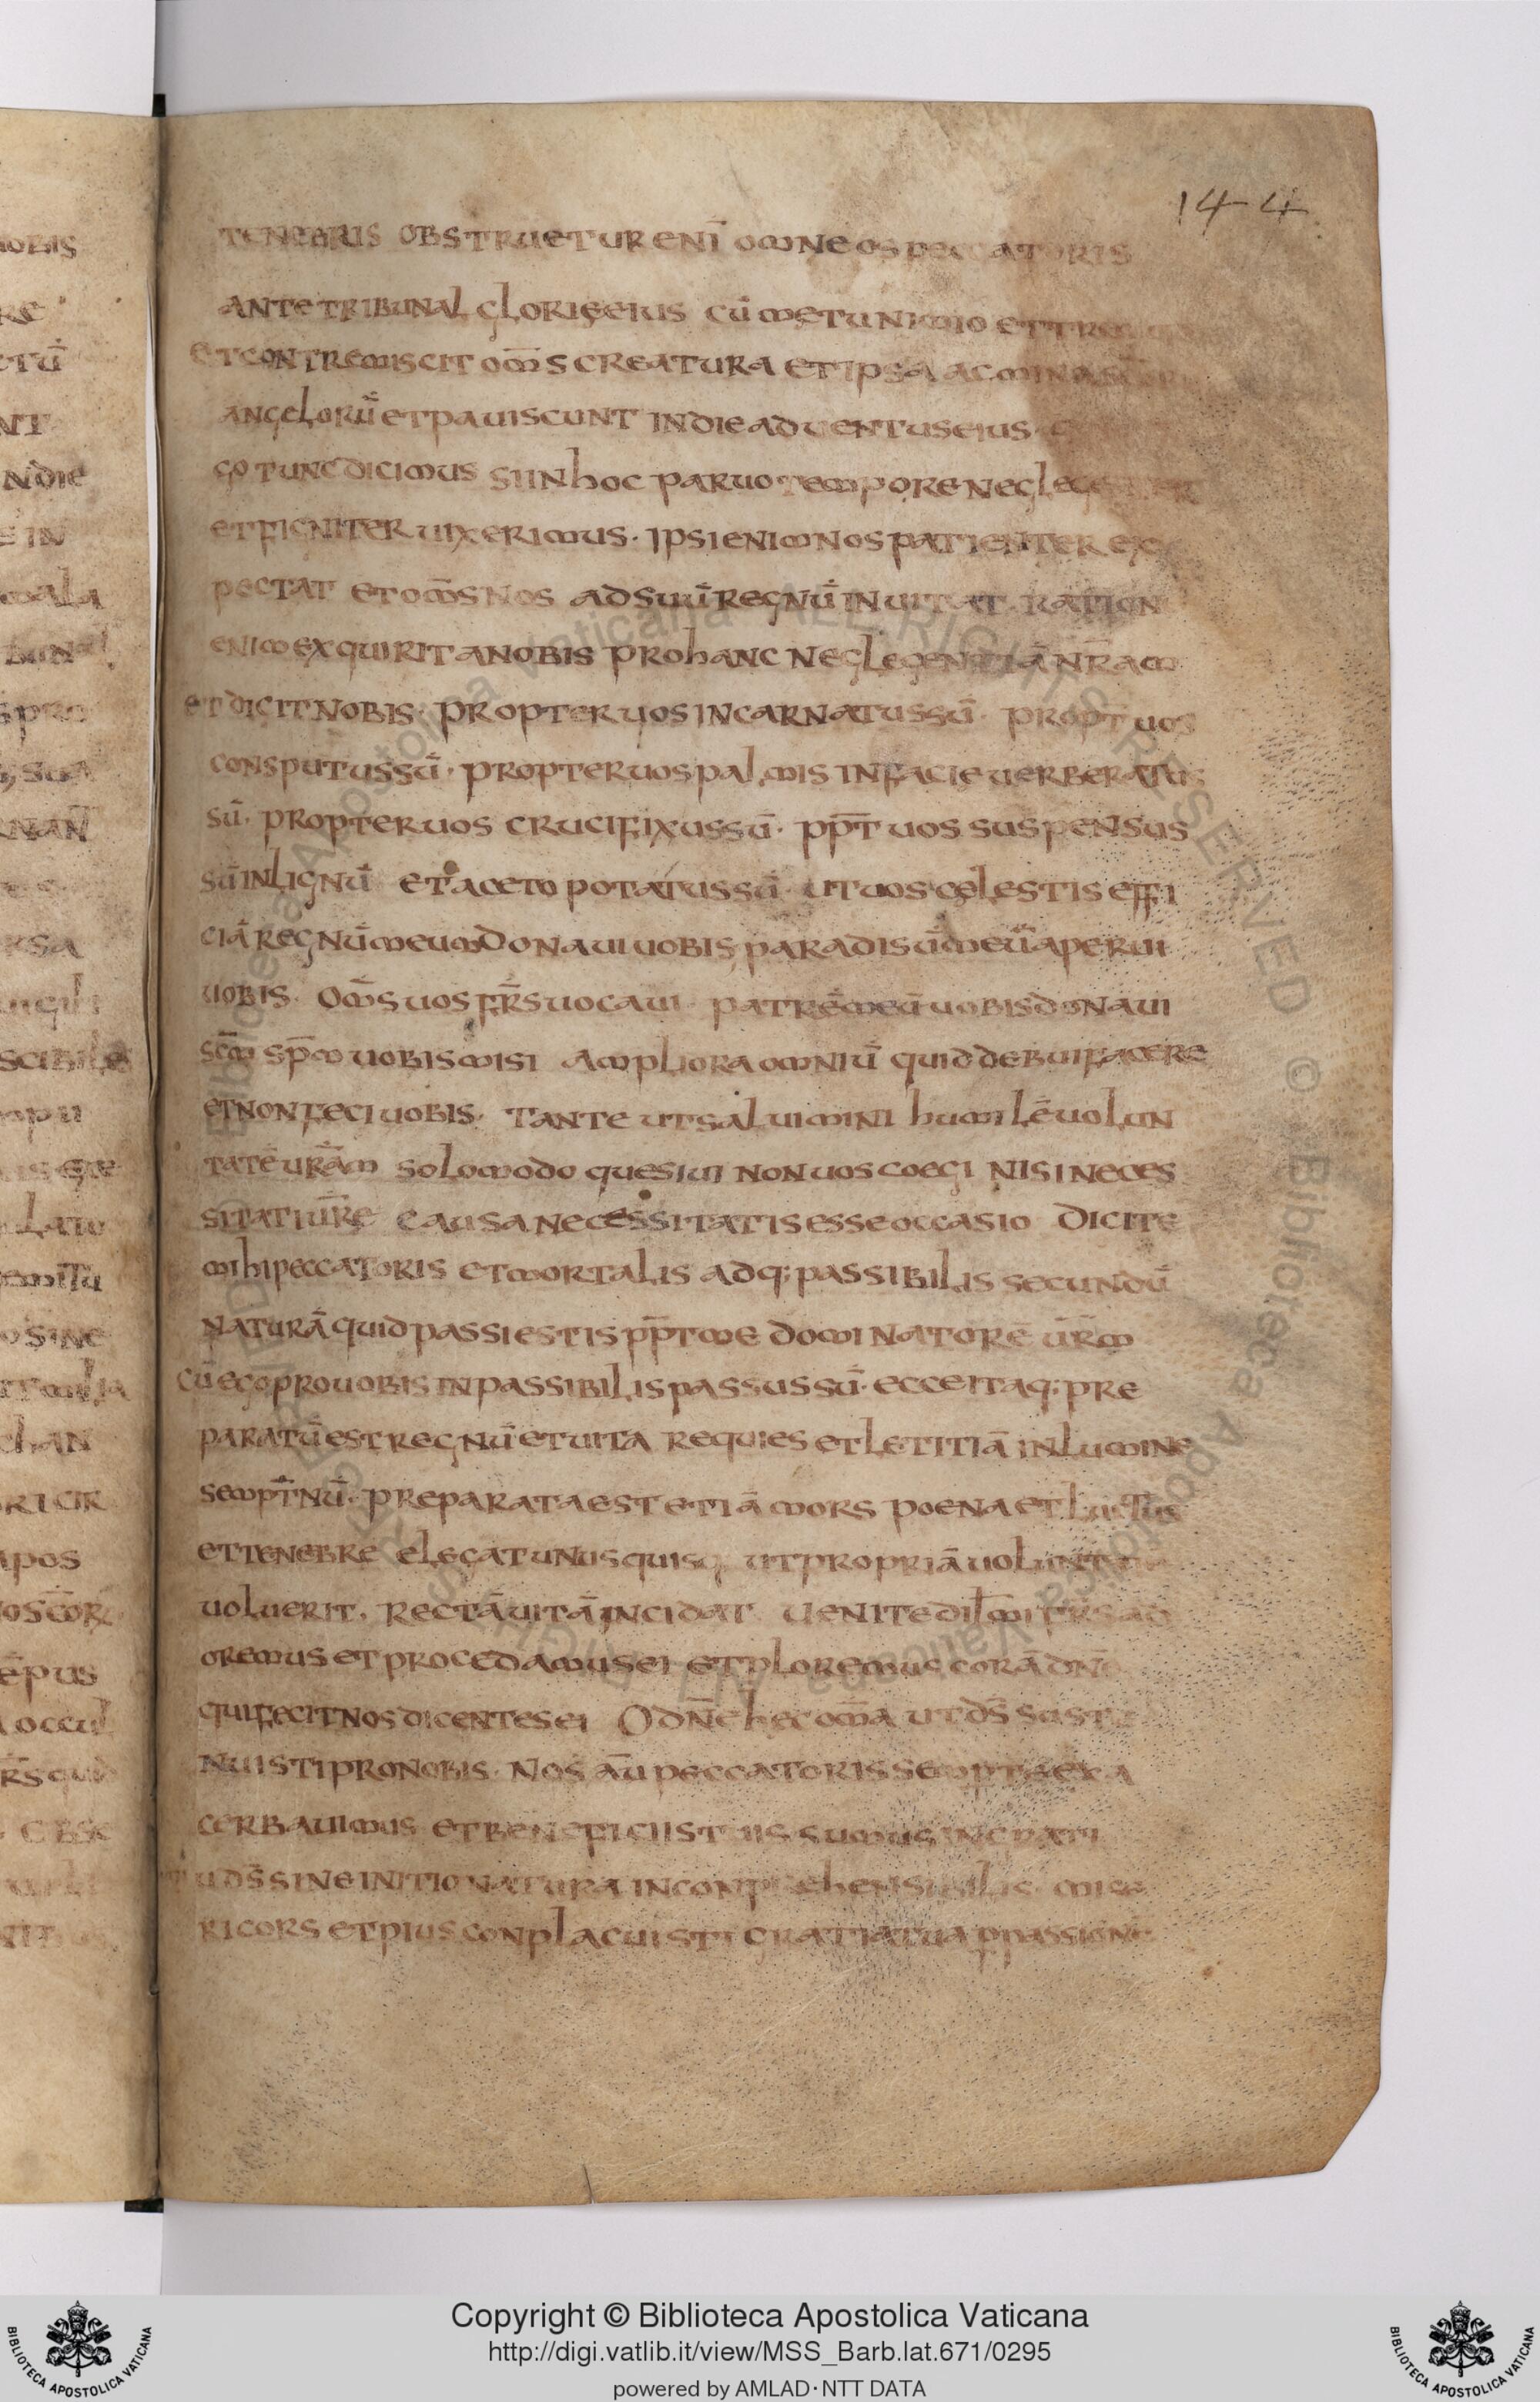 144
TENEBRIS OBSTRUETUR ENĪ OMNE OS PECCATORIS
ANTE TRIBUNAL GLORIĘ EIUS CŪ METU NIMIO ET
ET CONTREMISCIT OM̄S CREATURA ET IPSA AGMINA
ANGELORŪ ET PAUISCUNT IN DIE ADUENTUS EIUS
GO TUNC DICIMUS SI IN hOC PARUO TEMPORE NEGLEGENTER
ET FIGNITER UIXERIMUS · IPSI ENIM NOS PATIENTER EX
PECTAT ET OM̄S NOS AD SUŪ REGNŪ INUITAT RATION
ENIM EXQUIRIT A NOBIS PRO hANC NEGLEGENTIĀ NR̄AM
ET DICIT NOBIS · PROPTER UOS INCARNATUS SŪ · PROPT UOS
CONSPUTUS SŪ · PROPTER UOS PALMIS IN FACIE UERBERATUS
SŪ · PROPTER UOS CRUCIFIXUS SŪ · PP̄T UOS SUSPENSUS
SŪ IN LIGNŪ ET ACETO POTATUS SŪ · UT UOS CĘLESTIS EFFI
CIĀ REGNŪ MEUM DONAUI UOBIS PARADISŪ MEŪ APERUI
UOBIS · OM̄S UOS FR̄S UOCAUI · PATRĒ MEŪ UOBIS DONAUI
SC̄M SP̄M UOBIS MISI AMPLIORA OMNIŪ QUID DEBUI FACERE
ET NON FECI UOBIS · TANTE UT SALUIMINI hUMILĒ UOLUN
TATĒ UR̄AM SOLOMODO QUESIUI NON UOS COEGI NISI NECES
SITATI UR̄E CAUSA NECESSITATIS ESSE OCCASIO DICITE
MIhI PECCATORIS ET MORTALIS ADQ; PASSIBILIS SECUNDŪ
NATURĀ QUID PASSI ESTIS PP̄T ME DOMINATORĒ UR̄M
CŪ EGO PRO UOBIS INPASSIBILIS PASSUS SŪ · ECCE ITAQ; PRE
PARATŪ EST REGNŪ ET UITA REQUIES ET LETITIĀ IN LUMINE
SEMPT̄NŪ · PREPARATA EST ETIĀ MORS POENA ET LUCTUS
ET TENEBRE ELEGAT UNUSQUISQ; UT PROPRIĀ UOLUNTA
UOLUERIT · RECTĀ UITĀ INCIDAT UENITE DIL̄MI FR̄S AD
OREMUS ET PROCEDAMUS EI ET PLOREMUS CORĀ DN̄O
QUI FECIT NOS DICENTES EI O DN̄E hEC OM̄A UT DS̄ SUSTE
NUISTI PRO NOBIS · NOS AŪ PECCATORIS SEMPER EXA
CERBAUIMUS ET BENEFICIIS TUIS SUMUS INGRATI
TU DS̄ SINE INITIO NATURA INCONPREhENSIBILIS MISE
RICORS ET PIUS CONPLACUISTI GRATIA TUA P PASSIONĒ
Copyright © Biblioteca Apostolica Vaticana
http://digi.vatlib.it/view/MSS_Barb.lat.671/0295
powered by AMLAD·NTT DATA
BIBLIOTECA APOSTOLICA VATICANA
BIBLIOTECA APOSTOLICA VATICANA